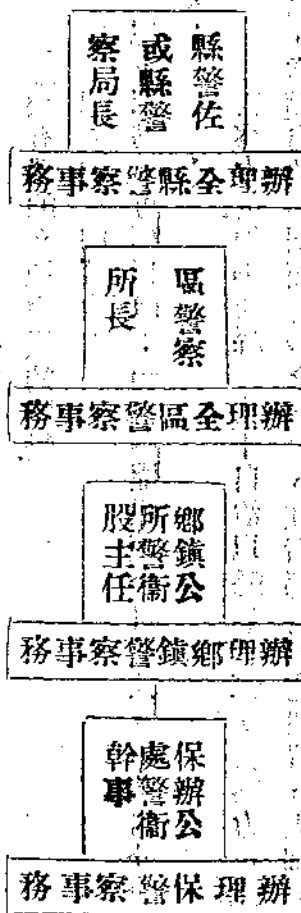 縣警佐
或縣警
察局長
辦理全縣警察事務
區警察
所長
辦理全區警察事務
鄉鎮公
所警衛
股主任
辦理鄉鎮警察事務
保辦公
處警衛
幹事
辦理保警察事務